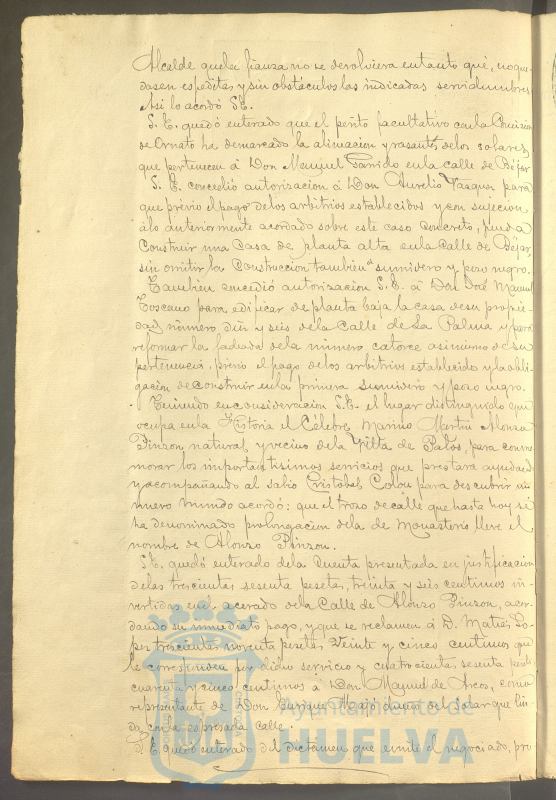 Alcalde que la fianza no se devolviera en tanto que, no que
dasen espeditas y sin obstáculos las indicadas servidumbres
Asi lo acordó S.E.
S. E. quedó enterado que el perito facultativo con la Comision
de Ornato ha demarcado la alineacion y rasante de los solares
que pertenecen á Don Manuel Garrido en la calle de Béjar
S. E. concedió autorizacion á Don Aurelio Vazquez para
que previo el pago de los arbitrios establecidos y con sujecion
á lo anteriormente acordado sobre este caso concreto, pueda
Construir una Casa de planta alta en la Calle de Béjar,
sin omitir la Construccion tambien de sumidero y pozo negro.
Tambien concedió autorizacion S.E. á Don José Manuel
Toscano para edificar de planta baja la casa de su propie
dad número diez y seis de la Calle de La Palma y para
reformar la fachada de la número catorce asimismo de su
pertenencia, previo el pago de los arbitrios establecido y la obli
gacion de construir en la primera sumidero y pozo negro.
Teniendo en consideracion S.E. el lugar distinguido que
ocupa en la Historia el Célebre Marino Martin Alonso
Pinzon natural y vecino de la Villa de Palos, para conme
morar los importantisimos servicios que prestara ayudando
y acompañando al sabio Cristobal Colon para descubrir un
nuevo mundo acordó: que el trozo de calle que hasta hoy se
ha denominado prolongacion de la de Monasterio lleve el
nombre de Alonzo Pinzon.
S.E. quedó enterado de la Cuenta presentada en justificacion
de las trescientas sesenta pesetas, treinta y seis centimos in
vertidas en el acerado de la Calle de Alonzo Pinzon, acor
dando su inmediato pago, y que se reclamen á D. Matias Lo
pez trescientas noventa pesetas Veinte y cinco centimos que
le corresponden por dicho servicio y cuatrocientas sesenta pesetas
cuarenta y cinco centimos á Don Manuel de Arcos, como
representante de Don Enrique dueño del Solar que lin
da con la espresada calle.
S. E. quedó enterado del dictámen que emite el negociado, pro
Ayuntamiento de
HUELVA